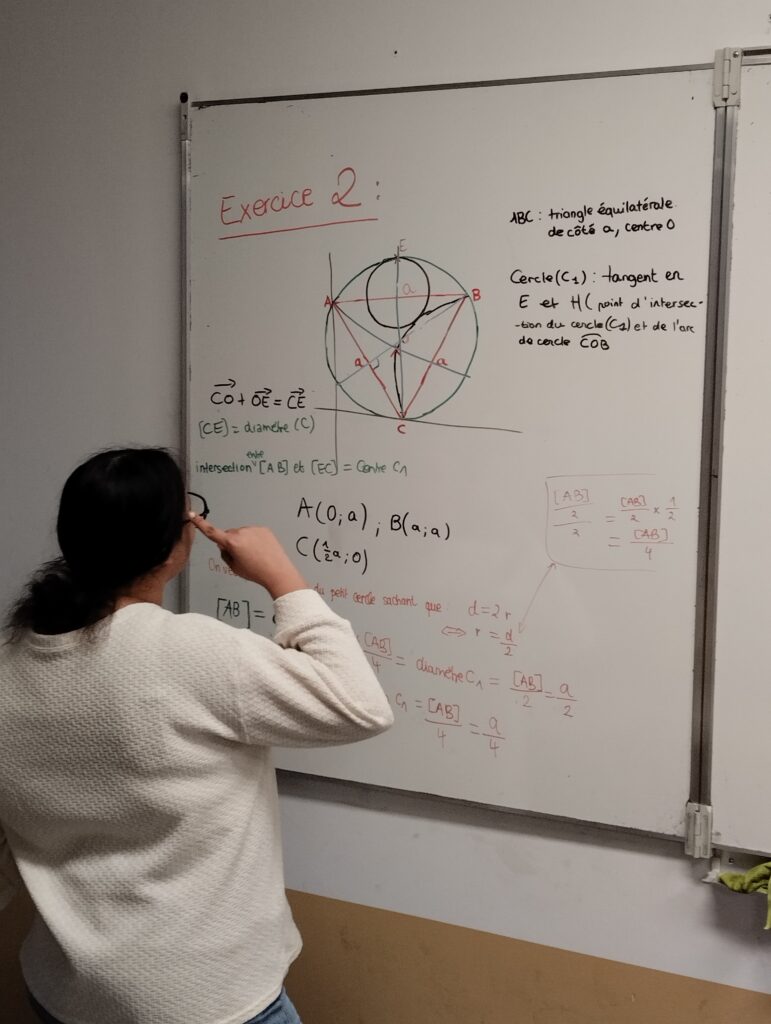 Exercice 2 :
ABC : triangle équilatérale
de côté a, centre O
Cercle (C1) : tangent en
E et H ( point d'intersec-
-tion du cercle (C1) et de l'arc
de cercle COB
E
A
a
B
O
a
a
C
CO + OE = CE
[CE] = diamètre (C)
intersection entre [AB] et [EC] = Centre C1
A(0; a) ; B(a; a)
C(1/2 a; 0)
[AB]/2 / 2 = [AB]/2 × 1/2
= [AB]/4
On
du petit cercle sachant que : d = 2 r
⇔ r = d/2
[AB] =
[AB]/4 = diamètre C1 = [AB]/2 = a/2
C1 = [AB]/4 = a/4